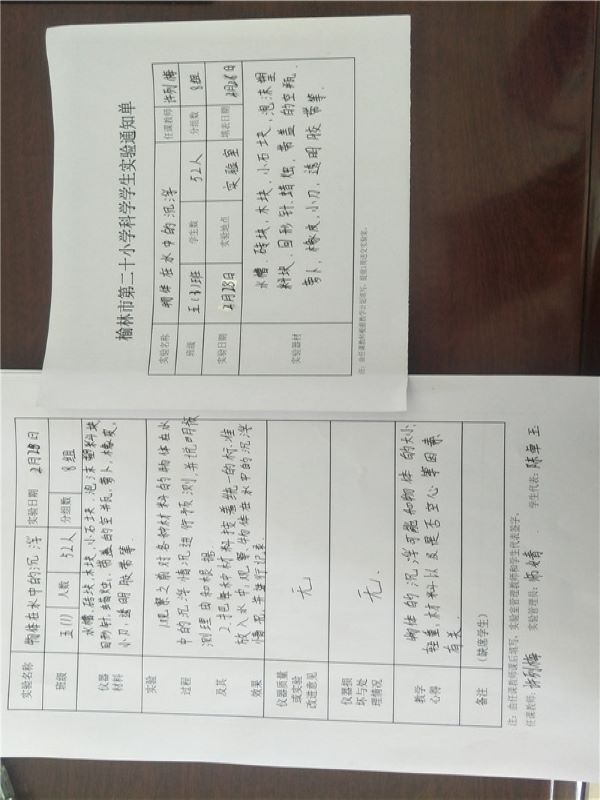 榆林市第二十小学科学学生实验通知单
实验名称 物体在水中的沉浮 任课教师
班级 学生数 52人 分组数 8组
实验日期 2月28日 实验地点 实验室 填表日期
实验器材 水槽、砖块、木块、小石块、泡沫塑
料块、回形针、蜡烛、带盖的空瓶、
萝卜、橡皮、小刀、透明胶带等。
实验名称 物体在水中的沉浮 实验日期 2月28日
班级 五(1) 人数 52人 分组数 8组
仪器材料 水槽、砖块、木块、小石块、泡沫塑料块
回形针、蜡烛、带盖的空瓶、萝卜、橡皮、
小刀、透明胶带等。
实验过程及其效果 1.观察之前对各种材料的物体在水
中的沉浮情况进行预测,并说明预
测理由和根据。
2.把每种材料按着统一的标准
放入水中观察物体在水中的沉浮
情况,并进行记录。
仪器质量或实验改进意见 无
仪器损坏与处理情况 无.
教学心得 物体的沉浮可能和物体的大小、
轻重、材料以及是否空心等因素
有关。
备注 (缺席学生)
注:由任课教师课后填写,实验室管理教师和学生代表签字。
任课教师: 实验管理员: 学生代表: